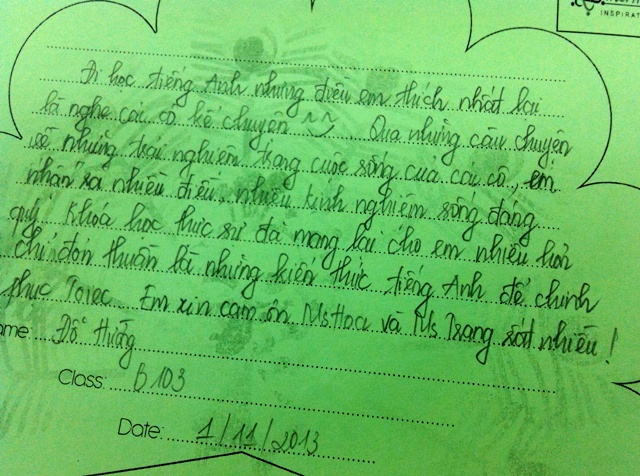 INSPIRAT
Đi học tiếng Anh nhưng điều em thích nhất lại
là nghe các cô kể chuyện ^^. Qua những câu chuyện
về những trải nghiệm trong cuộc sống của các cô, em
nhận ra nhiều điều, nhiều kinh nghiệm sống đáng
quý. Khóa học thực sự đã mang lại cho em nhiều hơn
chỉ đơn thuần là những kiến thức tiếng Anh để chinh
phục Toiec. Em xin cảm ơn Ms Hoa và Ms Trang rất nhiều!
ame: Đỗ Hường
Class: B103
Date: 1/11/2013